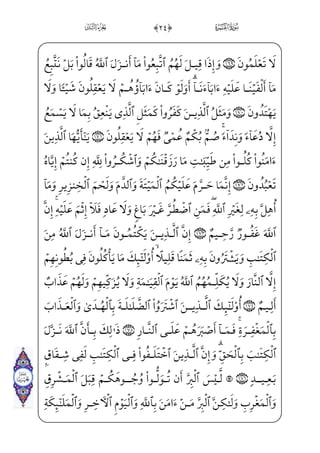 سُورَةُ البَقَرَةِ ﴿٢٤﴾ الجُزْءُ الثَّانِي
لَا تَعْلَمُونَ ۝ وَإِذَا قِيلَ لَهُمُ ٱتَّبِعُوا۟ مَآ أَنزَلَ ٱللَّهُ قَالُوا۟ بَلْ نَتَّبِعُ
مَآ أَلْفَيْنَا عَلَيْهِ ءَابَآءَنَآ ۗ أَوَلَوْ كَانَ ءَابَآؤُهُمْ لَا يَعْقِلُونَ شَيْـًٔا وَلَا
يَهْتَدُونَ ۝ وَمَثَلُ ٱلَّذِينَ كَفَرُوا۟ كَمَثَلِ ٱلَّذِى يَنْعِقُ بِمَا لَا يَسْمَعُ
إِلَّا دُعَآءً وَنِدَآءً ۚ صُمٌّۢ بُكْمٌ عُمْىٌ فَهُمْ لَا يَعْقِلُونَ ۝ يَـٰٓأَيُّهَا ٱلَّذِينَ
ءَامَنُوا۟ كُلُوا۟ مِن طَيِّبَـٰتِ مَا رَزَقْنَـٰكُمْ وَٱشْكُرُوا۟ لِلَّهِ إِن كُنتُمْ إِيَّاهُ
تَعْبُدُونَ ۝ إِنَّمَا حَرَّمَ عَلَيْكُمُ ٱلْمَيْتَةَ وَٱلدَّمَ وَلَحْمَ ٱلْخِنزِيرِ وَمَآ
أُهِلَّ بِهِۦ لِغَيْرِ ٱللَّهِ ۖ فَمَنِ ٱضْطُرَّ غَيْرَ بَاغٍ وَلَا عَادٍ فَلَآ إِثْمَ عَلَيْهِ ۚ إِنَّ
ٱللَّهَ غَفُورٌ رَّحِيمٌ ۝ إِنَّ ٱلَّذِينَ يَكْتُمُونَ مَآ أَنزَلَ ٱللَّهُ مِنَ
ٱلْكِتَـٰبِ وَيَشْتَرُونَ بِهِۦ ثَمَنًا قَلِيلًا ۙ أُو۟لَـٰٓئِكَ مَا يَأْكُلُونَ فِى بُطُونِهِمْ
إِلَّا ٱلنَّارَ وَلَا يُكَلِّمُهُمُ ٱللَّهُ يَوْمَ ٱلْقِيَـٰمَةِ وَلَا يُزَكِّيهِمْ وَلَهُمْ عَذَابٌ
أَلِيمٌ ۝ أُو۟لَـٰٓئِكَ ٱلَّذِينَ ٱشْتَرَوُا۟ ٱلضَّلَـٰلَةَ بِٱلْهُدَىٰ وَٱلْعَذَابَ
بِٱلْمَغْفِرَةِ ۚ فَمَآ أَصْبَرَهُمْ عَلَى ٱلنَّارِ ۝ ذَٰلِكَ بِأَنَّ ٱللَّهَ نَزَّلَ
ٱلْكِتَـٰبَ بِٱلْحَقِّ ۗ وَإِنَّ ٱلَّذِينَ ٱخْتَلَفُوا۟ فِى ٱلْكِتَـٰبِ لَفِى شِقَاقٍۭ
بَعِيدٍ ۝ ۞ لَّيْسَ ٱلْبِرَّ أَن تُوَلُّوا۟ وُجُوهَكُمْ قِبَلَ ٱلْمَشْرِقِ
وَٱلْمَغْرِبِ وَلَـٰكِنَّ ٱلْبِرَّ مَنْ ءَامَنَ بِٱللَّهِ وَٱلْيَوْمِ ٱلْـَٔاخِرِ وَٱلْمَلَـٰٓئِكَةِ